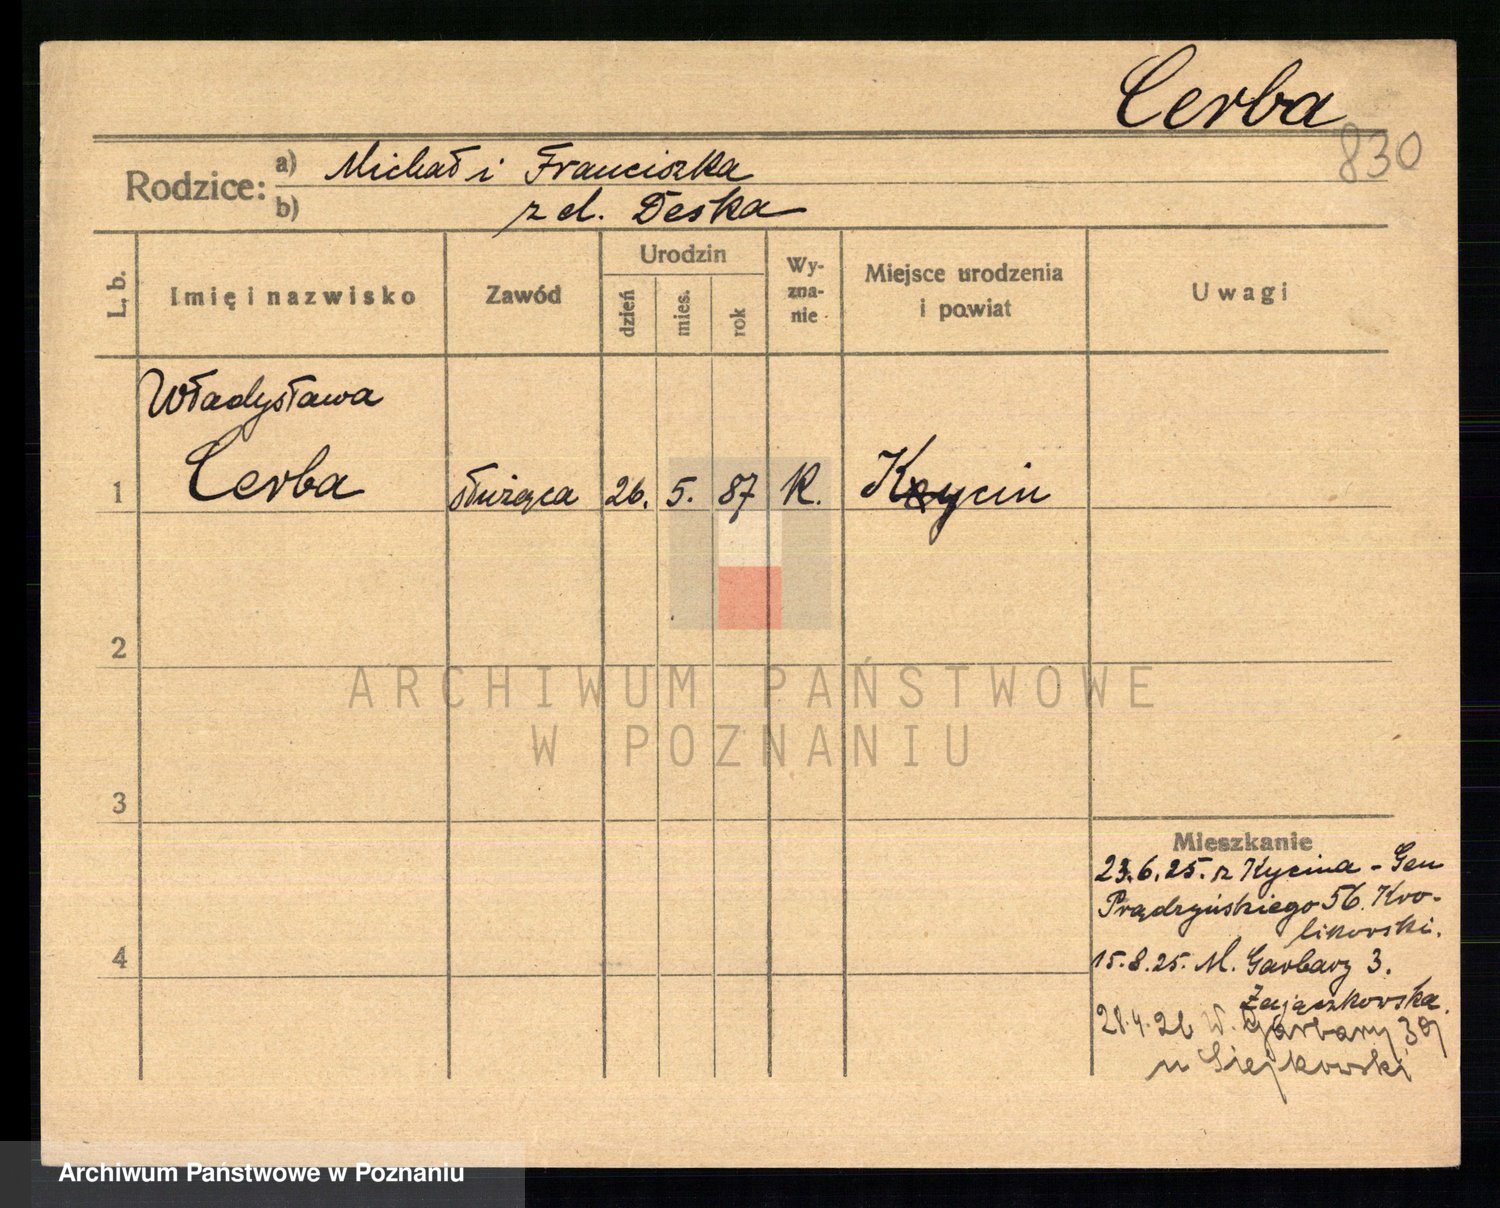 Cerba
830
Rodzice: a) Michał i Franciszka
b) z d. Deska
L. b. Imię i nazwisko Zawód Urodzin dzień mies. rok Wyzna-nie Miejsce urodzenia i powiat Uwagi
Władysława
1 Cerba służąca 26. 5. 87 K. Kcycin
2
ARCHIWUM PAŃSTWOWE
W POZNANIU
3
Mieszkanie
23.6.25. z Kycina - Gen
Prądzyńskiego 56. Kro-
likowski.
4
15.8.25. M. Garbary 3.
Zajączkowska.
28.4.26 W. Garbary 39
u
Archiwum Państwowe w Poznaniu